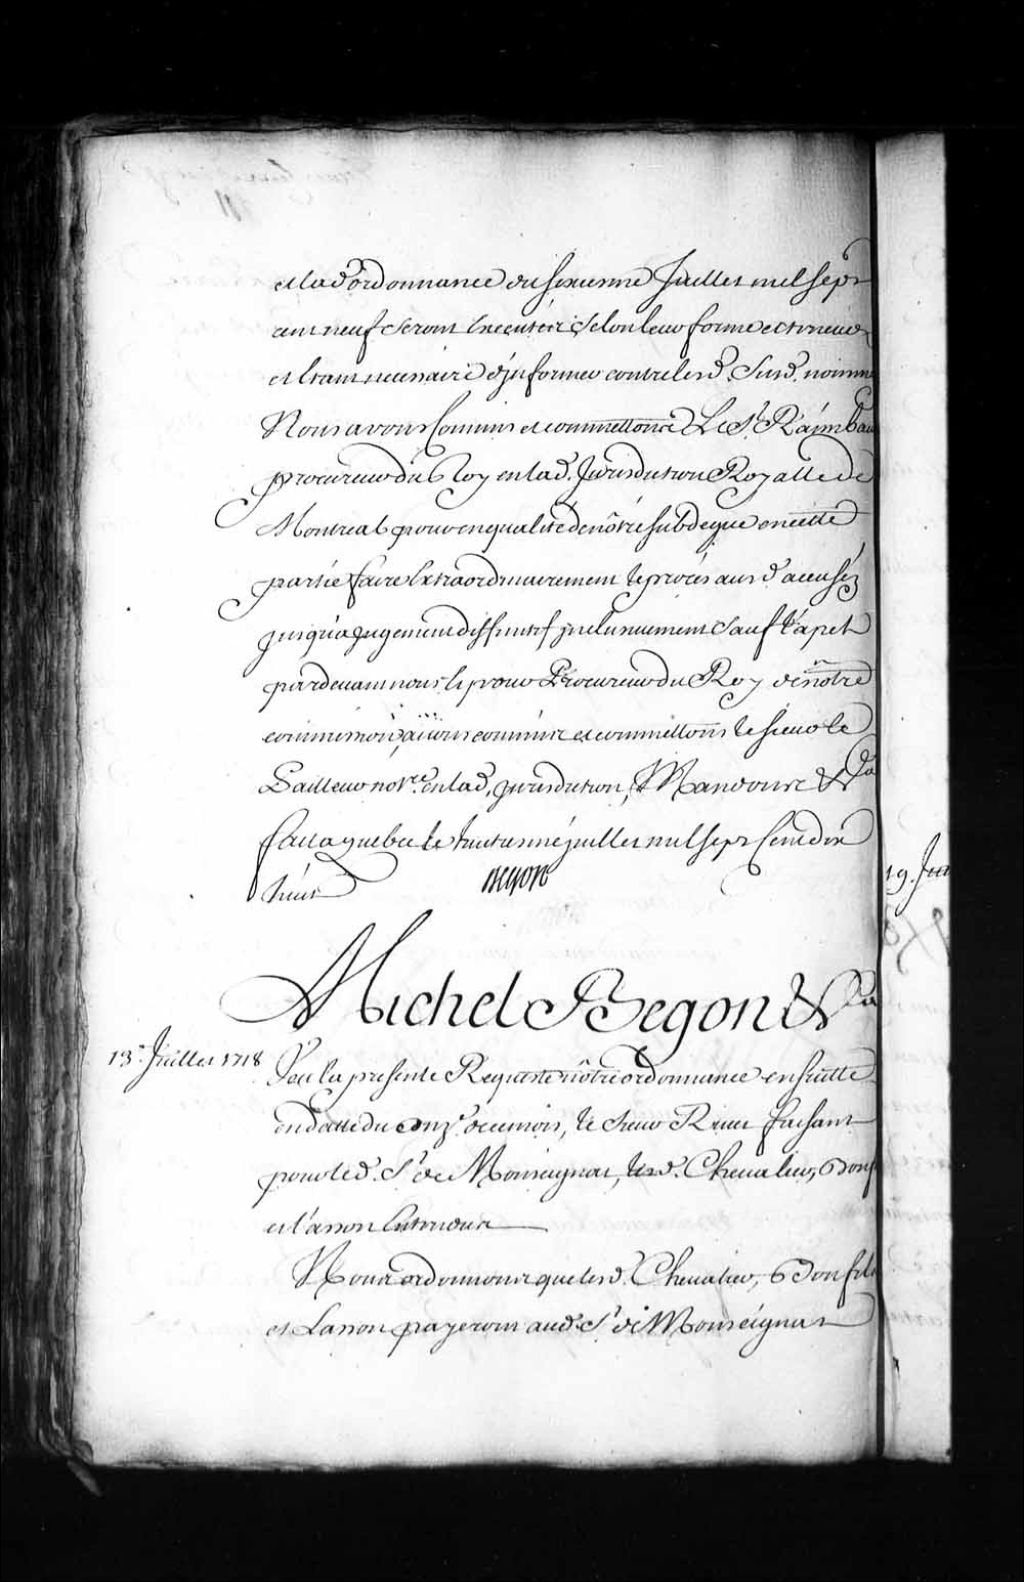 et lad ordonnance du sixieme Juillet mil sept
cent neuf seront Executées selon leur forme et teneur
et Estant necessaire d'jnformer contre lesd. Susd. nommé
Nous avons Commis et commettons Le Sr. Raimbau
procureur du Roy en lad. Jurisdiction Royalle de
Montreal pour en qualité de nôtre subdegué en cette
partie faire Extraordinairement le procés ausd accuséz
jusqu'a jugement diffinitif jnclusivement Sauf l'apel
pardevant nous, et pour Procureur du Roy de nôtre
commission, avons commis et commettons le sieur le
Pailleur notre. en lad. jurisdiction, Mandons &ca
fait a quebec le huitieme juillet mil sept Cent dix
huit
Begon
Michel Begon &ca
13e. Juillet 1718
Veu la presente Requeste nôtre ordonnance ensuitte
en datte du onze. de ce mois, le Sieur River faisant
pour led. Sr de Monseignat, lesd. Chevalier, Bonf
et Lanon Entendus
Nous ordonnons que lesd. Chevalier, Bonfils
et Lanon payeront aud. Sr de Monseignat
19. Juil